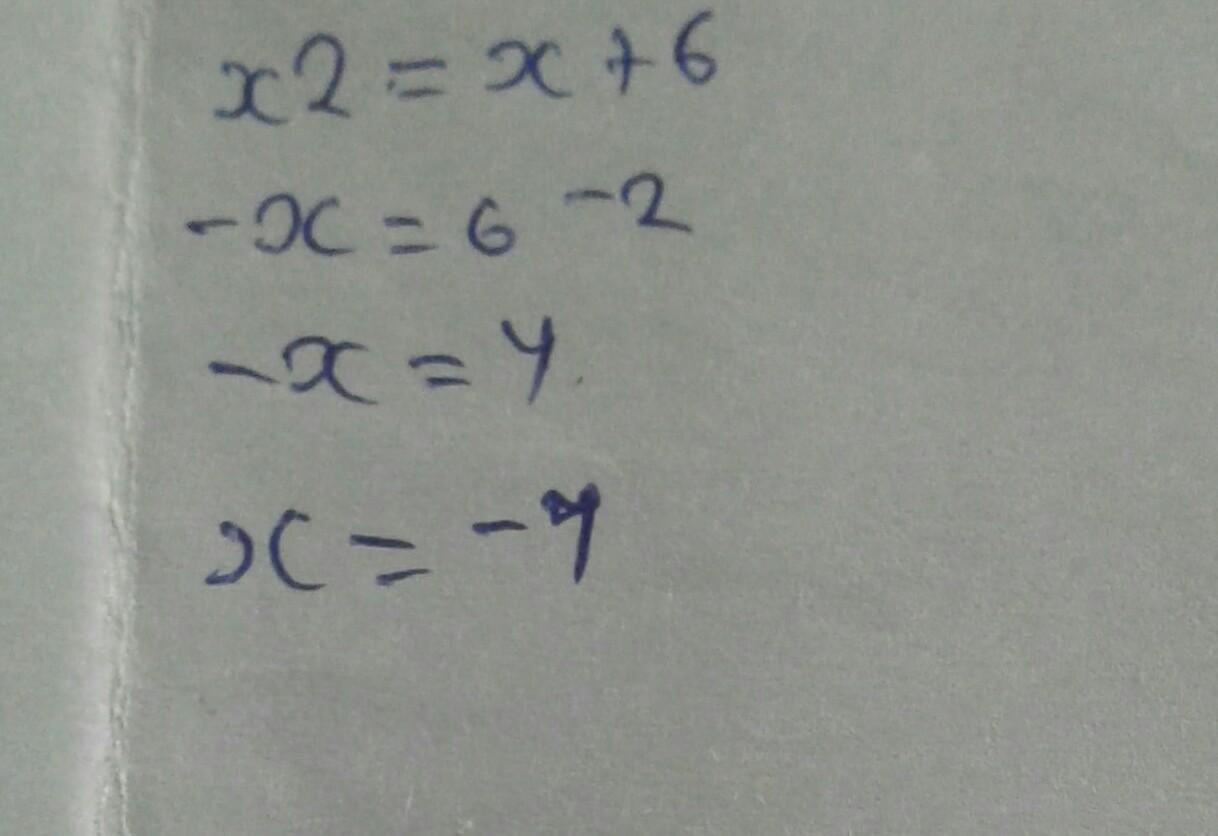 x2 = x + 6
-x = 6 -2
-x = 4
x = -4